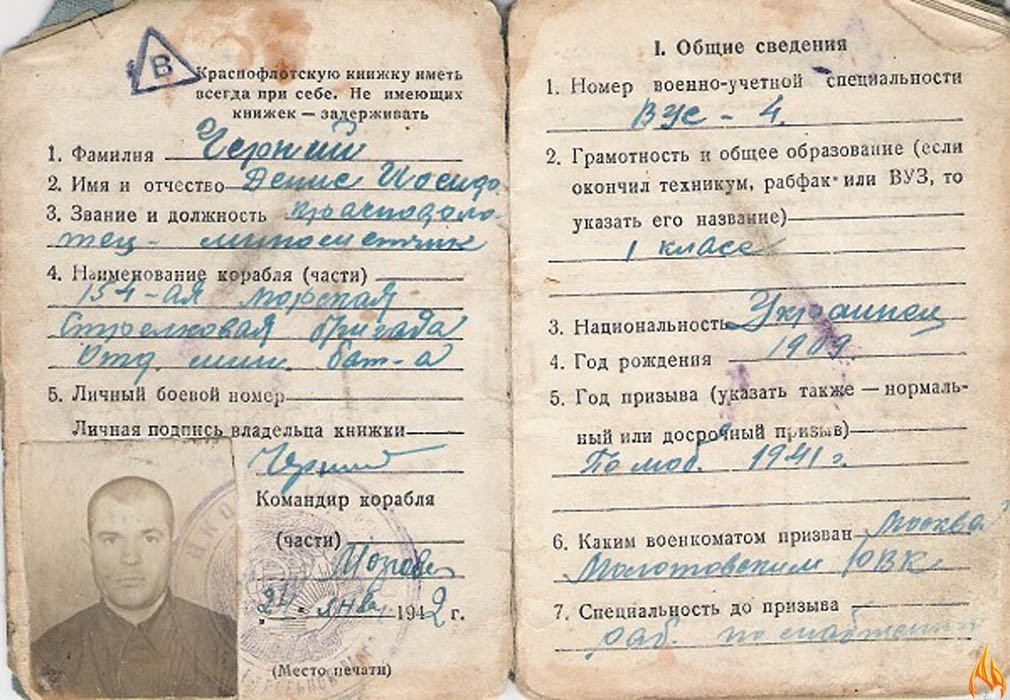 В
Краснофлотскую книжку иметь
всегда при себе. Не имеющих
книжек — задерживать
1. Фамилия Черний
2. Имя и отчество Денис Иосифо.
3. Звание и должность Краснофло-
тец - минометчик
4. Наименование корабля (части)
154-ая морская
стрелковая бригада
Отд. мин. бат-а
5. Личный боевой номер
Личная подпись владельца книжки
Черний
Командир корабля
(части)
24 янва 1942 г.
(Место печати)
I. Общие сведения
1. Номер военно-учетной специальности
ВУС - 4.
2. Грамотность и общее образование (если
окончил техникум, рабфак или ВУЗ, то
указать его название)
1 класс
3. Национальность Украинец
4. Год рождения 1909
5. Год призыва (указать также — нормаль-
ный или досрочный призыв)
По моб. 1941 г.
6. Каким военкоматом призван Москва
Молотовским РВК
7. Специальность до призыва
раб. по снабжению